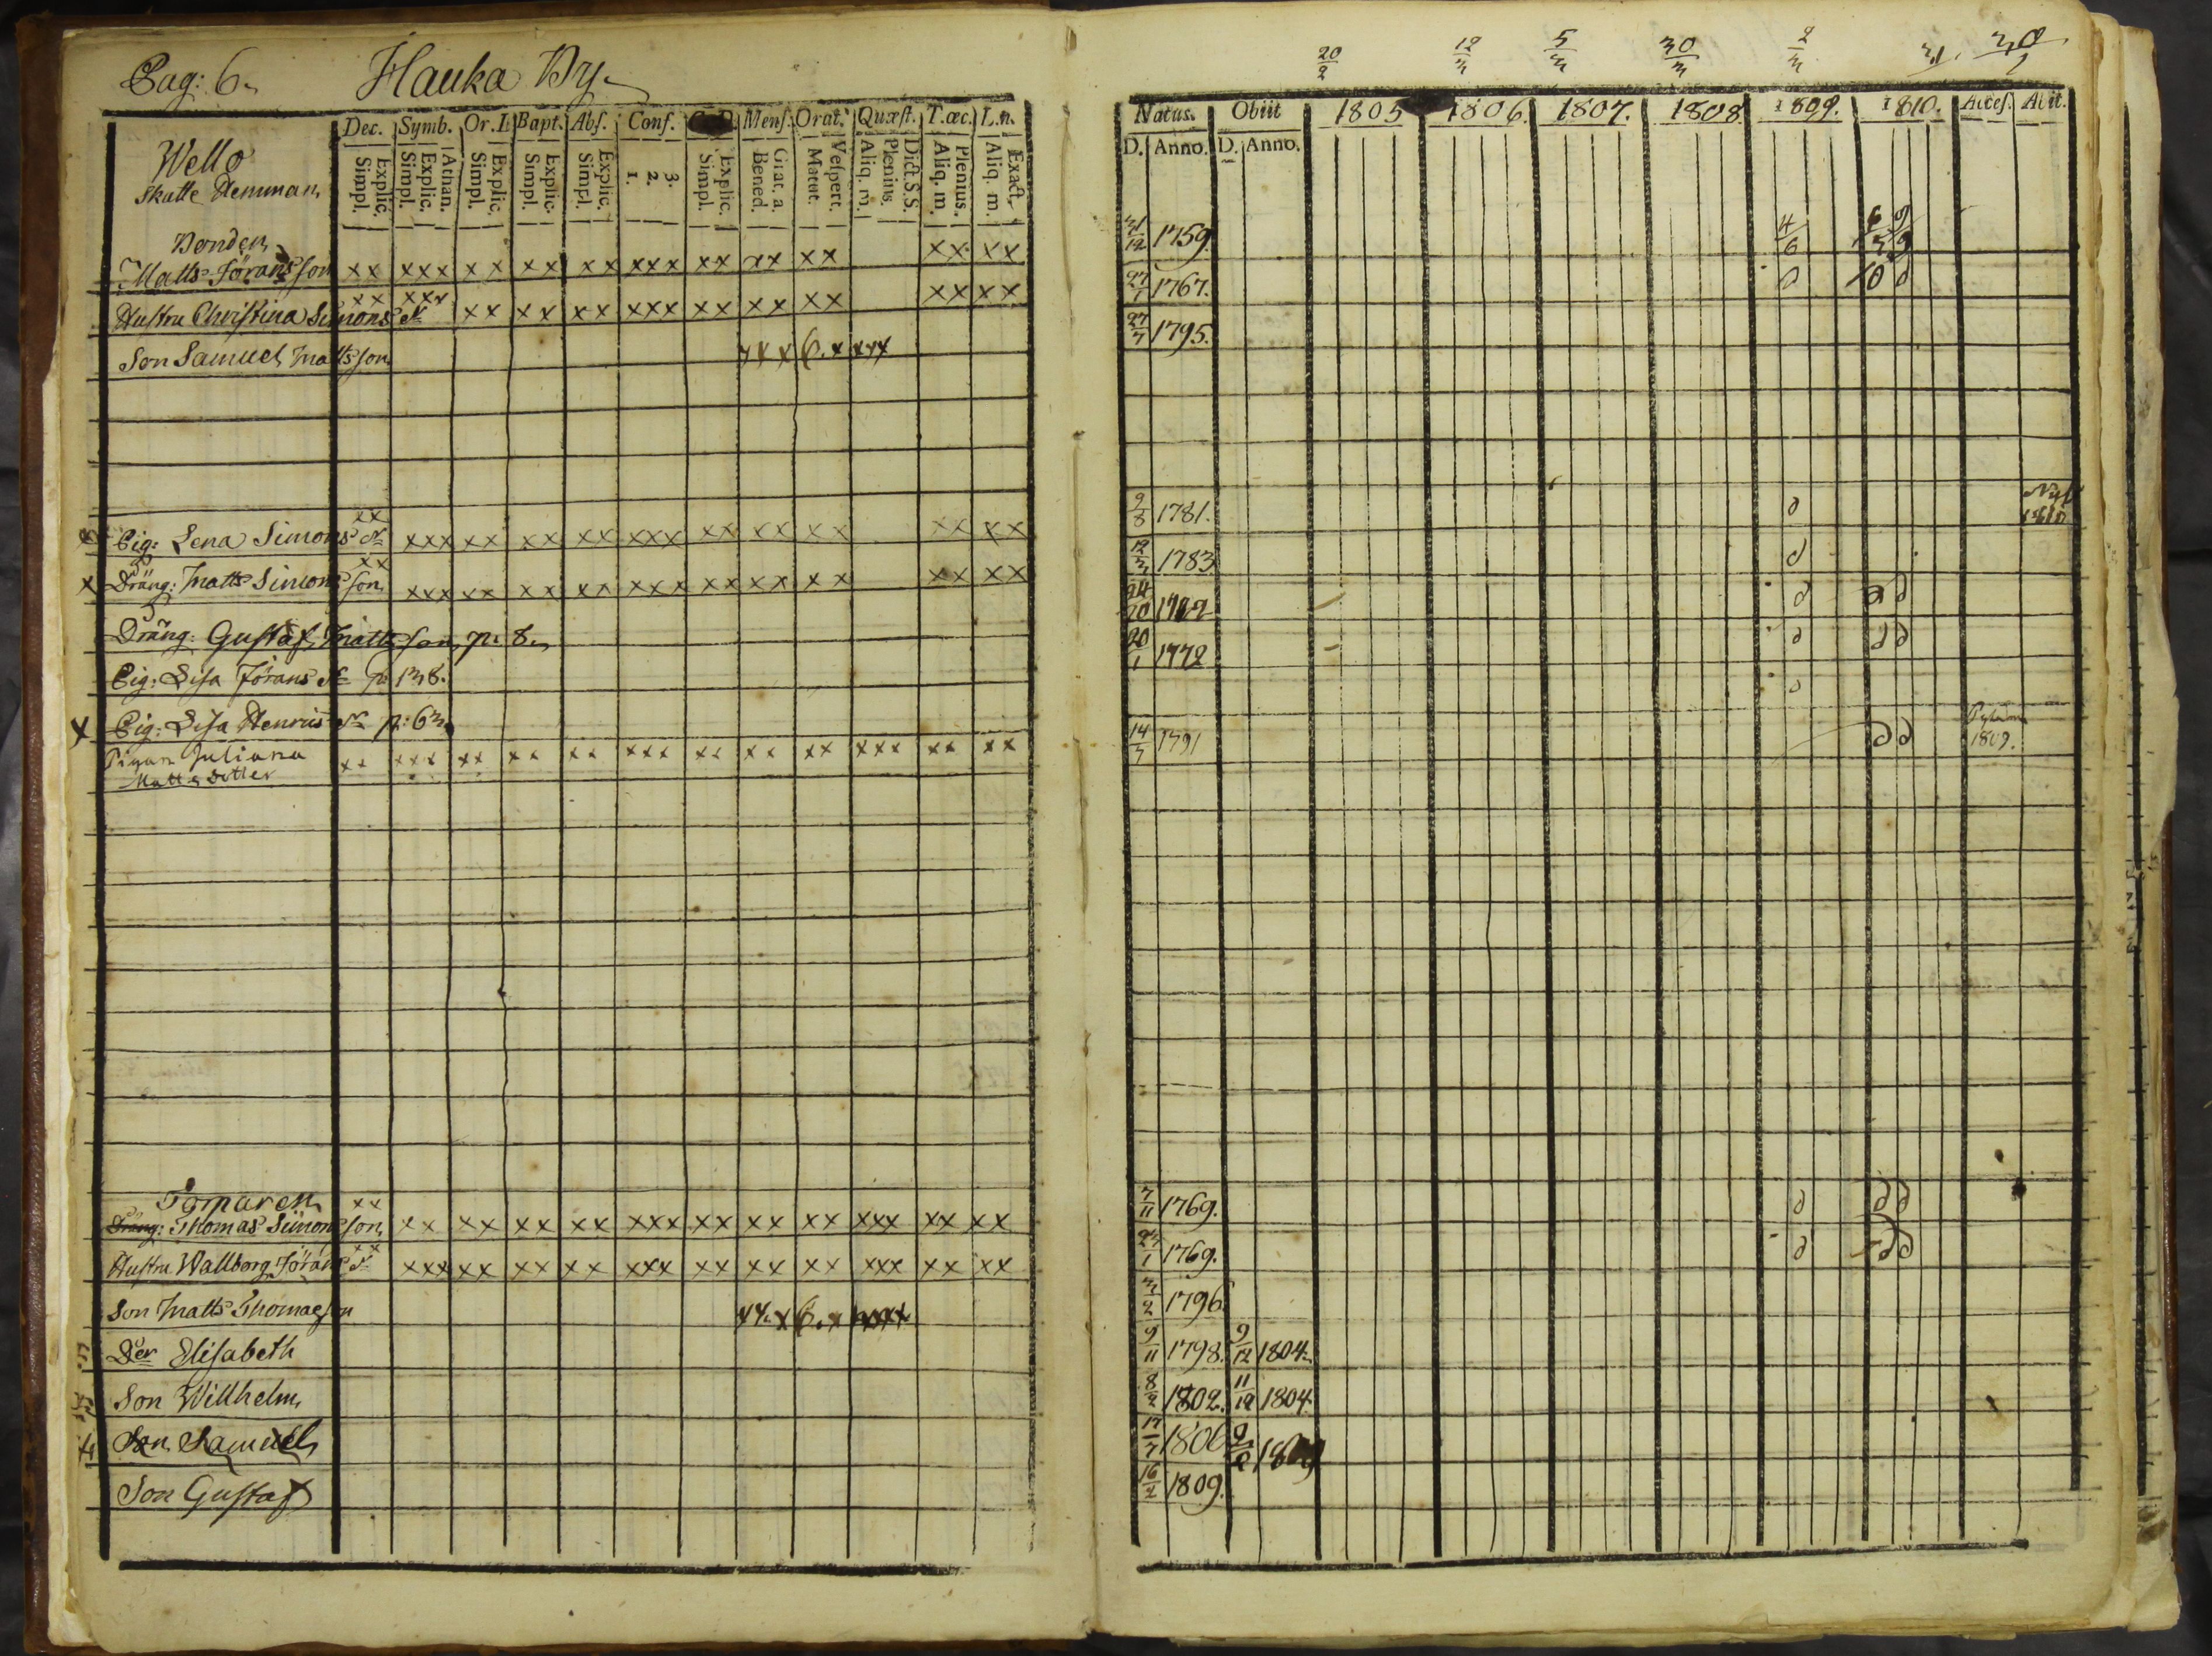 Pag: 6. Hauka By.
Dec. Symb. Or. D. Bapt. Abs. Conf. Mens. Orat. Quæst. T.œc. L.n.
Explic. Simpl. Athan. Explic. Simpl. Explic. Simpl. Explic. Simpl. Explic. Simpl. 3. 2. 1. Explic. Simpl. Grat. a. Bened. Vespert. Matut. Dict. S.S. Plenius. Aliq. m. Plenius. Aliq. m. Exact. Aliq. m.
Wello
Skatte Hemman
Bonden
Matts Jöransson xx xxx xx xx xx xxx xx xx xx xx xx
Hustru Christina Simons dr xx xxx xx xx xx xxx xx xx xx xx xx
Son Samuel Mattsson xxx 6. x xxx
Pig: Lena Simons dr xx xxx xx xx xx xxx xx xx xx xx xx
x Dräng: Matts Simonsson xx xxx xx xx xx xxx xx xx xx xx xx
Dräng: Gustaf Mattsson p: 8.
Pig: Lisa Jörans dr p 138.
x Pig: Lisa Henrics dr p: 63.
Pigan Juliana xx xxx xx xx xx xxx xx xx xx xxx xx xx
Matts dotter
Tomaren
Dräng: Thomas Simonsson xx xx xx xx xx xxx xx xx xx xxx xx xx
Hustru Wallborg Jörans dr xx xxx xx xx xx xxx xx xx xx xxx xx xx
Son Matts Thomasson
Der Elisabeth
Son Willhelm
Son Samuel
Son Gustaf
20/2 12/3 5/3 30/3 2/3
Natus. Obiit 1805 1806. 1807. 1808. 1809. 1810. Acces. Abit.
D. Anno. D. Anno.
31/12 1759. 4/6
27/1 1767.
27/7 1795.
9/8 1781.
12/3 1783
20/1 1772
14/7 1791 1809.
7/11 1769.
23/1 1769.
3/2 1796.
9/11 1798. 9/12 1804.
8/2 1802. 11/12 1804.
17/7 1806
16/2 1809.